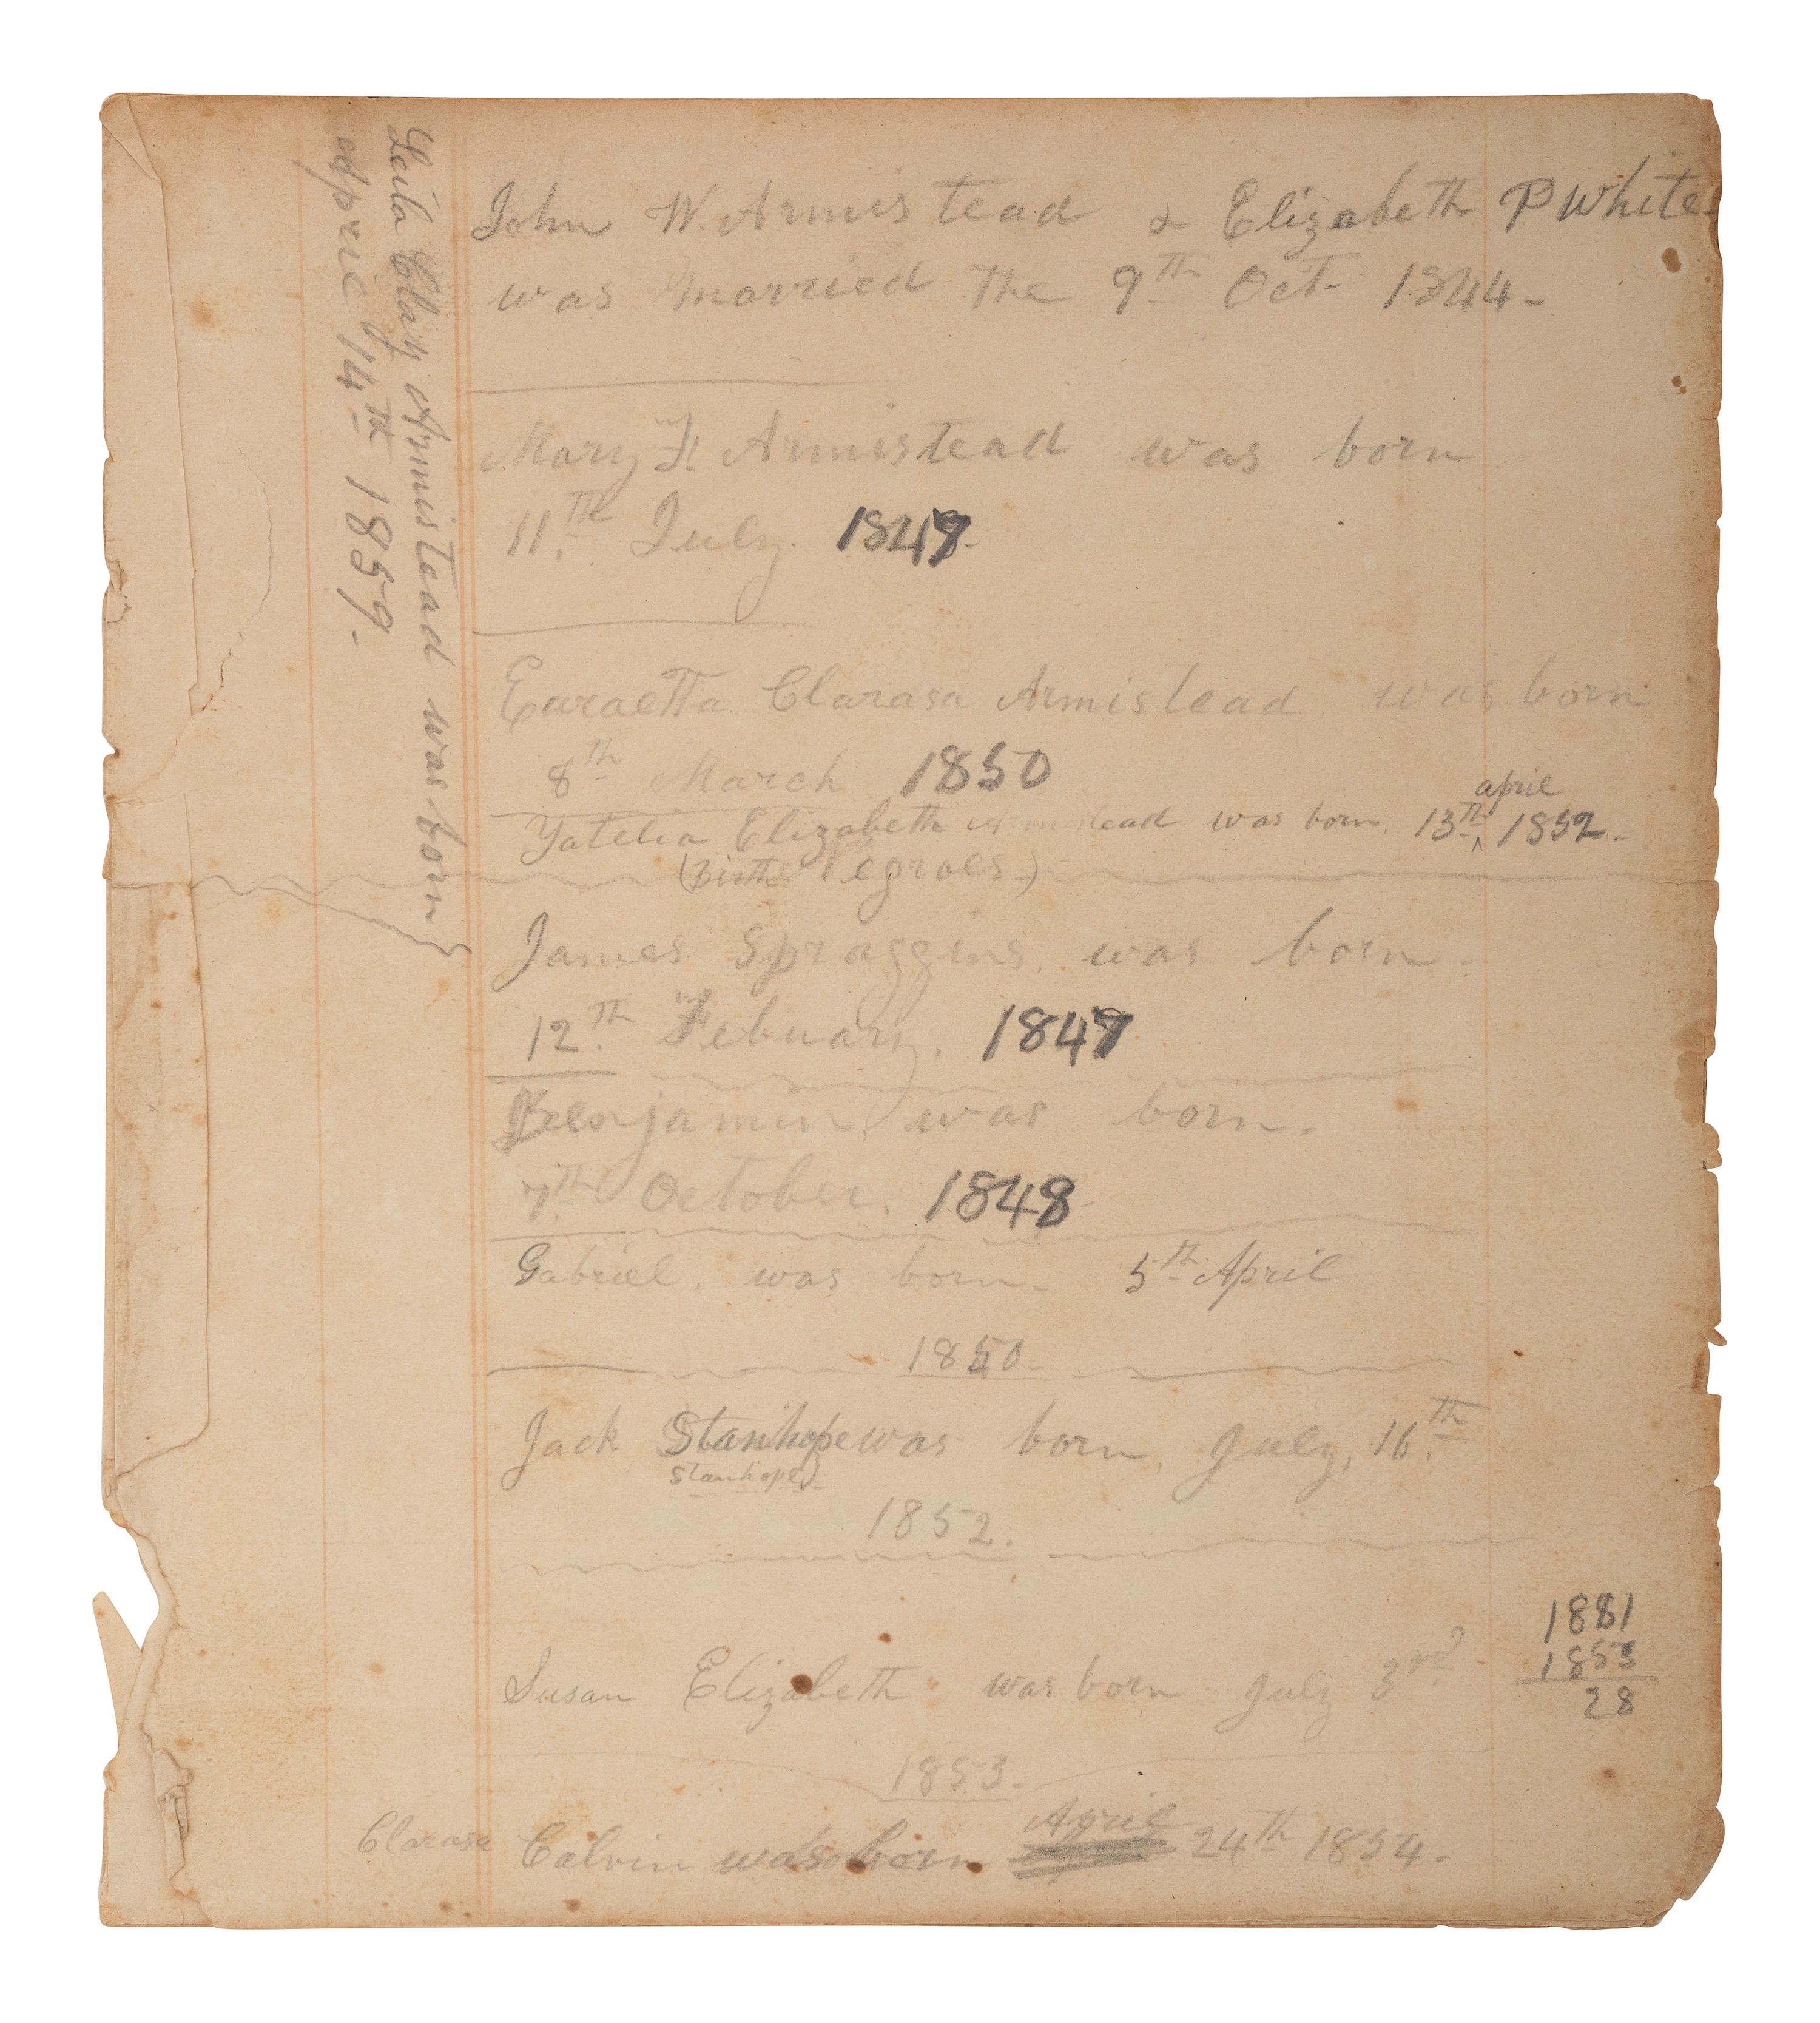 John W. Armistead & Elizabeth P White
was married the 9th Oct. 1844.
Mary F. Armistead was born
11th July 1847
Euraetta Clarasa Armistead was born
8th March 1850
april
Elizabeth Armistead was born. 13th ^ 1852.
(Births Negroes.)
James Spraggins was born.
12th Febuary. 1847
Benjamin was born.
7th October. 1848
Gabriel. was born. 5th April
1850
Jack Stanhope was born. July, 16th
Stanhope
1852.
Susan Elizabeth was born July 3rd
1853.
1881
1853
28
April
Clarasa Calvin was born 24th 1854.
Leila Clay Armistead was born
April 14th 1859.